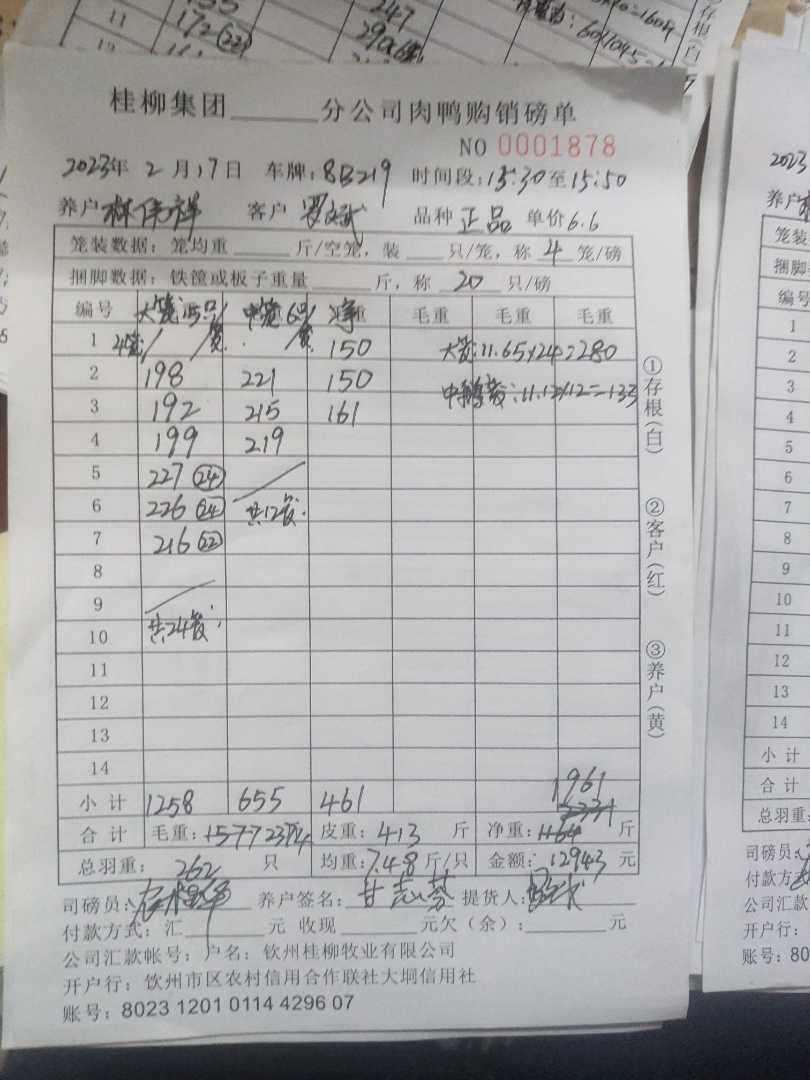 11
172(22)
247
桂柳集团______分公司肉鸭购销磅单
NO 0001878
2023年 2 月17日 车牌:8B219 时间段:15:30至15:50
养户 林伟祥 客户 罗 品种 正品 单价6.6
笼装数据:笼均重 斤/空笼,装 只/笼,称 4 笼/磅
捆脚数据:铁筐或板子重量 斤,称 20 只/磅
编号 大笼15只/笼 中笼6只/笼 净 毛重 毛重 毛重
1 4笼/ 150 大笼:11.65×24=280
2 198 221 150 11.12×12=133
3 192 215 161
4 199 219
5 227(24)
6 226(24) 共12笼.
7 216(22)
8
9
10 共24笼.
11
12
13
14
1961
小计 1258 655 461
合计 毛重: 2374 皮重: 413 斤 净重: 斤
总羽重: 262 只 均重:7.48斤/只 金额: 12943 元
司磅员: 养户签名: 甘 提货人:
付款方式:汇 元 收现 元欠(余): 元
公司汇款帐号:户名:钦州桂柳牧业有限公司
开户行:钦州市区农村信用合作联社大垌信用社
账号:8023 1201 0114 4296 07
①存根(白)
②客户(红)
③养户(黄)
2023
养户
笼装
捆脚
编号
1
2
3
4
5
6
7
8
9
10
11
12
13
14
小计
合计
总羽重:
司磅员:
付款方
公司汇款
开户行:
账号:80